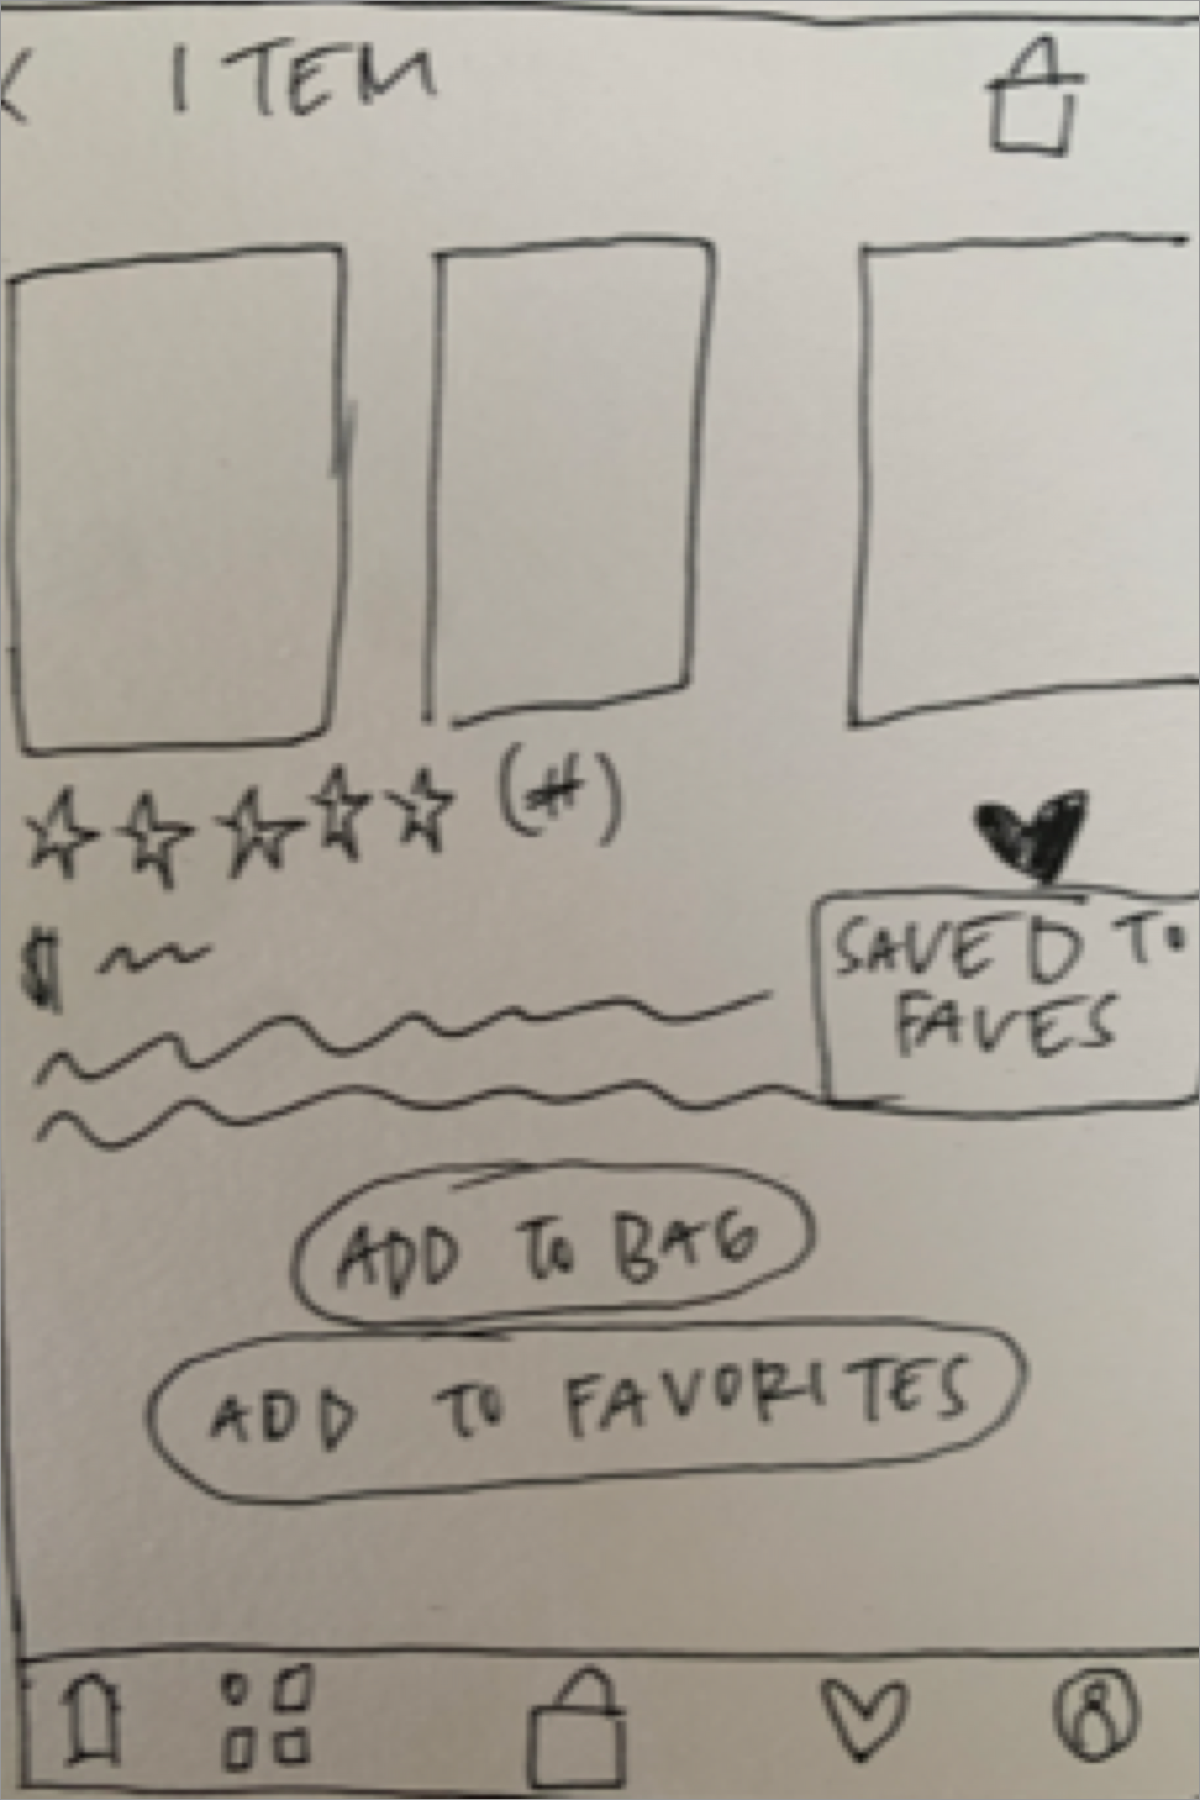 < ITEM
(#)
$
SAVED TO
FAVES
ADD TO BAG
ADD TO FAVORITES